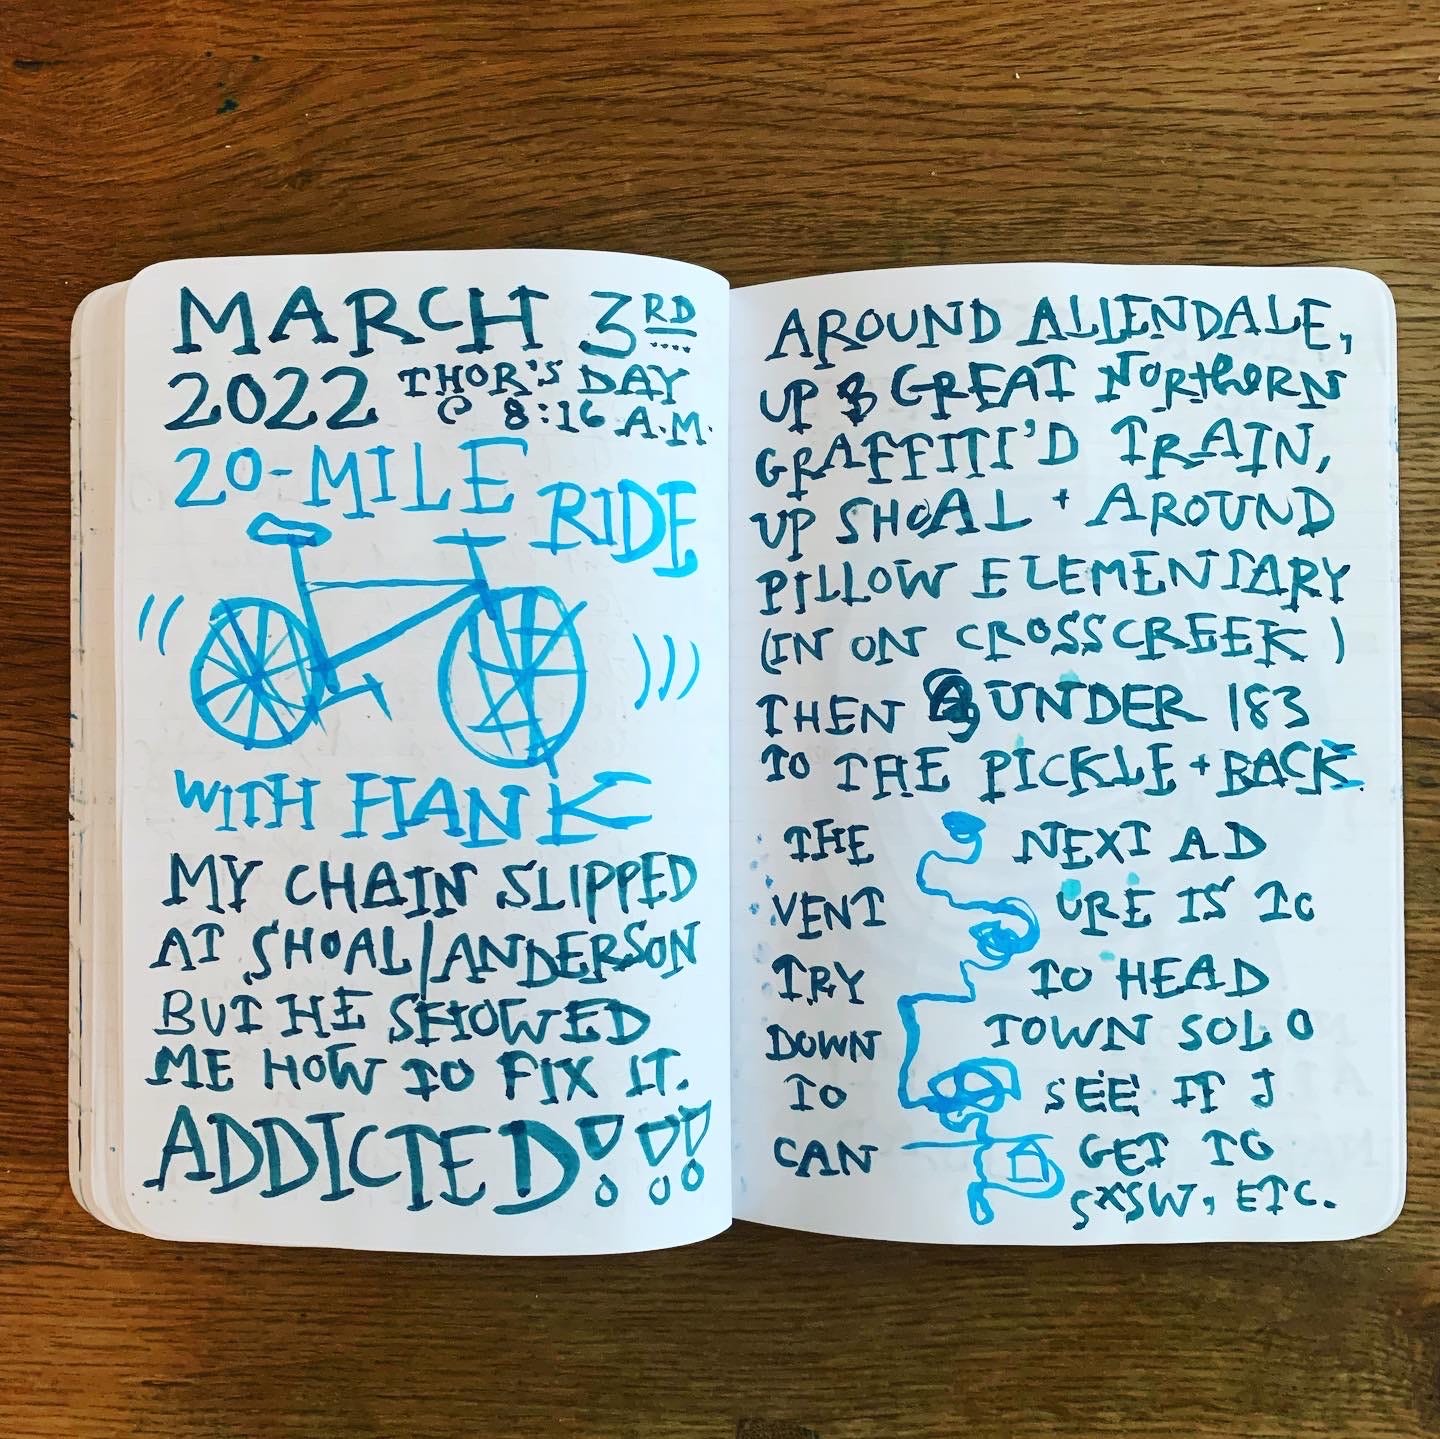 MARCH 3RD
2022 THOR'S DAY
@ 8:16 A.M.
20-MILE RIDE
WITH HANK
MY CHAIN SLIPPED
AT SHOAL/ANDERSON
BUT HE SHOWED
ME HOW TO FIX IT.
ADDICTED!!!
AROUND ALLENDALE,
UP GREAT NORTHERN
GRAFFITI'D TRAIN,
UP SHOAL + AROUND
PILLOW ELEMENTARY
(IN ON CROSSCREEK)
THEN UNDER 183
TO THE PICKLE + BACK
THE NEXT AD
VENT URE IS TO
TRY TO HEAD
DOWN TOWN SOLO
TO SEE IF I
CAN GET TO
SXSW, ETC.